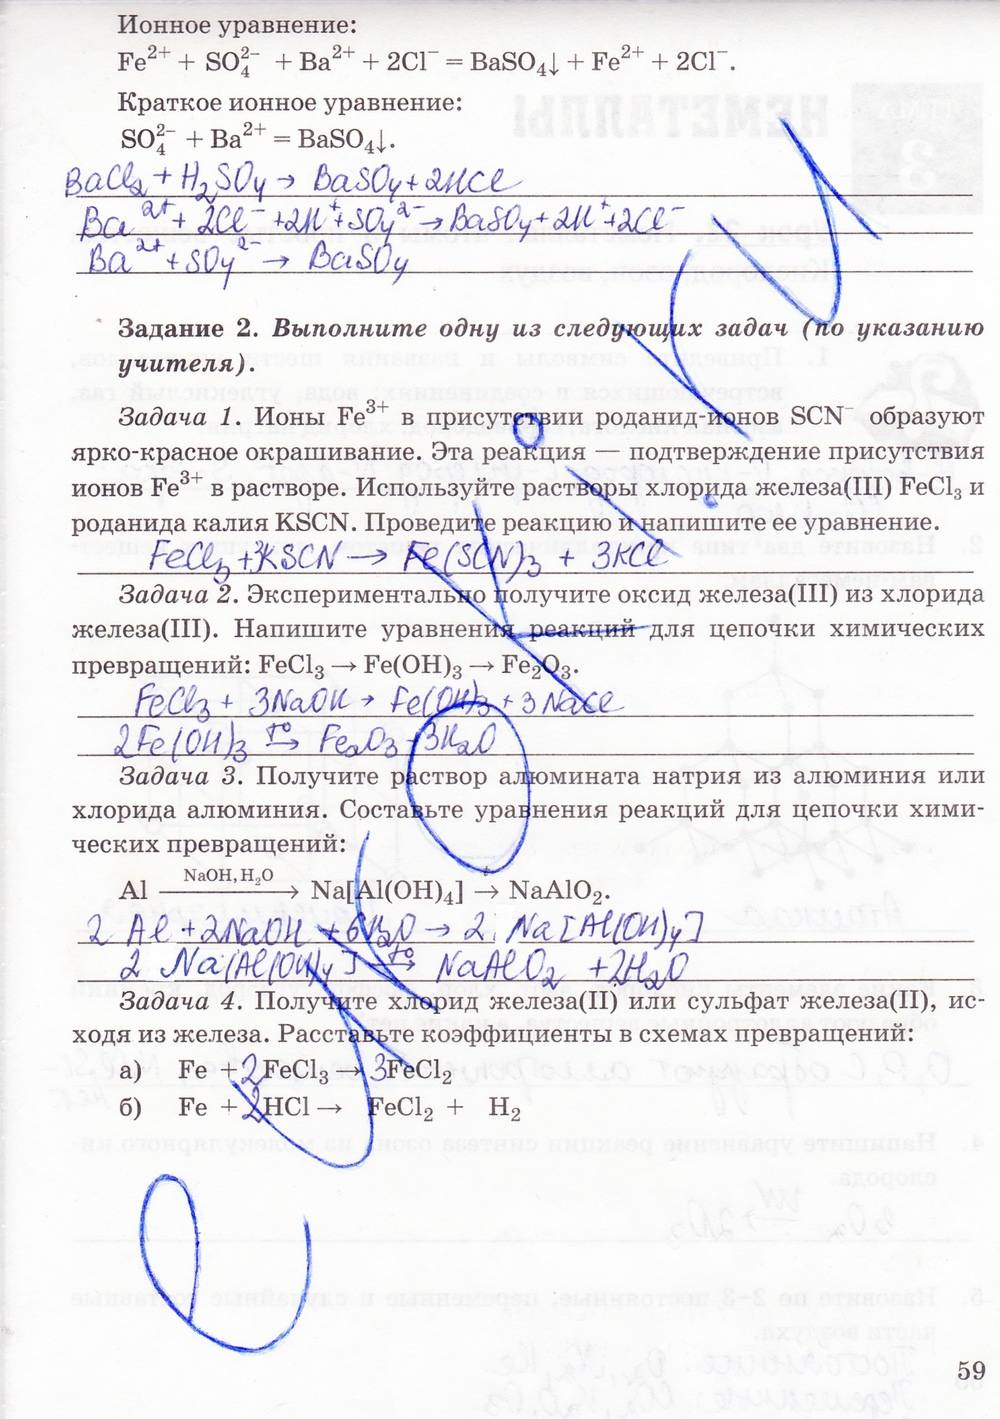 Ионное уравнение:
Fe²⁺ + SO₄²⁻ + Ba²⁺ + 2Cl⁻ = BaSO₄↓ + Fe²⁺ + 2Cl⁻.
Краткое ионное уравнение:
SO₄²⁻ + Ba²⁺ = BaSO₄↓.
BaCl₂ + H₂SO₄ → BaSO₄ + 2HCl
Ba²⁺ + 2Cl⁻ + 2H⁺ + SO₄²⁻ → BaSO₄ + 2H⁺ + 2Cl⁻
Ba²⁺ + SO₄²⁻ → BaSO₄
Задание 2. Выполните одну из следующих задач (по указанию
учителя).
Задача 1. Ионы Fe³⁺ в присутствии роданид-ионов SCN⁻ образуют
ярко-красное окрашивание. Эта реакция — подтверждение присутствия
ионов Fe³⁺ в растворе. Используйте растворы хлорида железа(III) FeCl₃ и
роданида калия KSCN. Проведите реакцию и напишите ее уравнение.
FeCl₃ + 3KSCN → Fe(SCN)₃ + 3KCl
Задача 2. Экспериментально получите оксид железа(III) из хлорида
железа(III). Напишите уравнения реакций для цепочки химических
превращений: FeCl₃ → Fe(OH)₃ → Fe₂O₃.
FeCl₃ + 3NaOH → Fe(OH)₃ + 3NaCl
2Fe(OH)₃ t°→ Fe₂O₃ + 3H₂O
Задача 3. Получите раствор алюмината натрия из алюминия или
хлорида алюминия. Составьте уравнения реакций для цепочки хими-
ческих превращений:
Al NaOH, H₂O→ Na[Al(OH)₄] t→ NaAlO₂.
2 Al + 2NaOH + 6H₂O → 2 Na[Al(OH)₄]
2 Na(Al(OH)₄] t°→ NaAlO₂ + 2H₂O
Задача 4. Получите хлорид железа(II) или сульфат железа(II), ис-
ходя из железа. Расставьте коэффициенты в схемах превращений:
а) Fe + 2FeCl₃ → 3FeCl₂
б) Fe + 2HCl → FeCl₂ + H₂
59